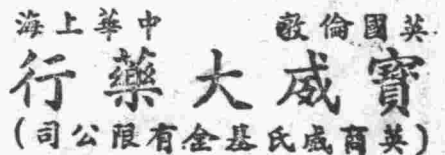 英國倫敦 中華上海
寶威大藥行
(英商威氏基金有限公司)